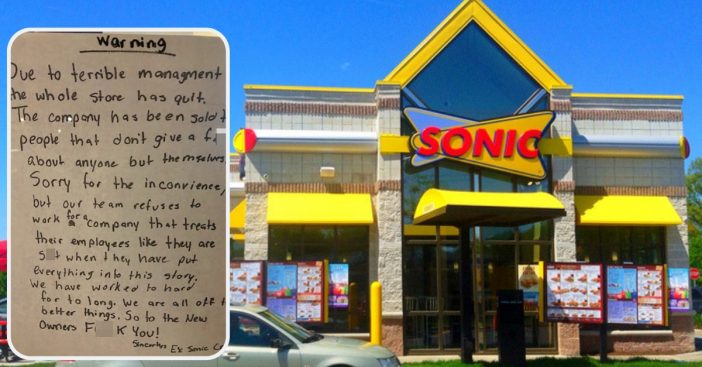 Warning
Due to terrible managment
the whole store has quit.
The company has been sold t
people that don't give a f
about anyone but themselves.
Sorry for the inconvience,
but our team refuses to
work for a company that treats
their employees like they are
S t when they have put
everything into this story.
We have worked to hard
for to long. We are all off t
better things. So to the New
Owners F K You!
Sincerly, Ex Sonic C
SONIC